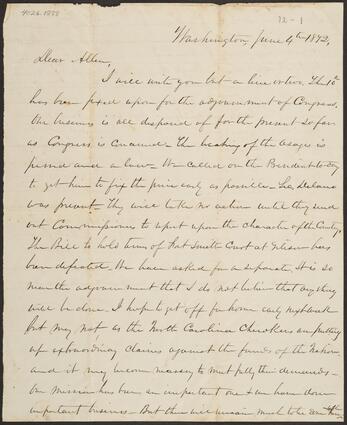 4026.1888
12-1
Washington, June 4th 1872,
Dear Allen,
I will write you but a line or two. The 10th
has been fixed upon for the adjournment of Congress.
Our business is all disposed of for the present so far
as Congress is concerned. The of the Osage is
passed and a law. We called on the President to-day
to get him to fix the price early as possible. Sec Delano
was present. They will take no action until they send
out Commissioners to report upon the character of the Country.
The Bill to hold term of Fort Smith Court at has
been defeated. We have asked for a separate. It is so
near the adjournment that I do not believe that anything
will be done. I hope to get off for home early next week
but may not, as the North Carolina Cherokees are putting
up extraordinary claims against the funds of the Nation,
and it may become necessary to meet fully their demands.
Our mission has been an important one & we have done
important business. But there will remain much to be done